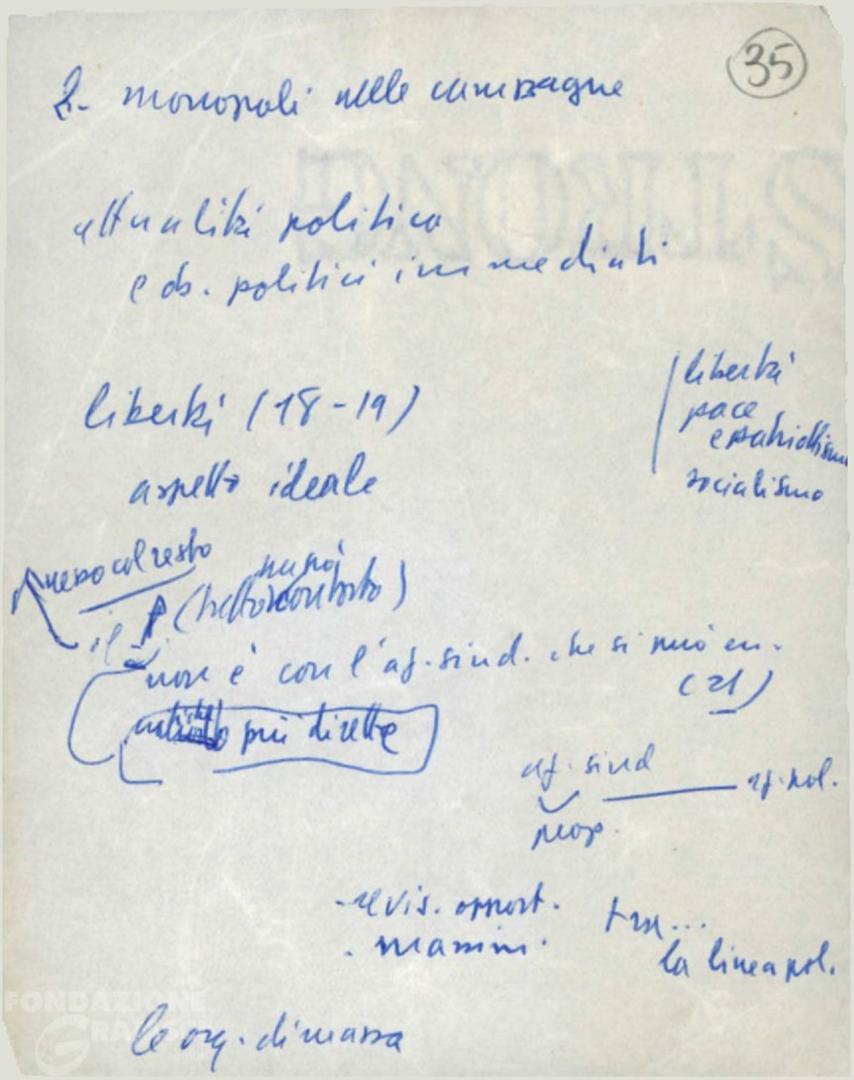 35
2- monopoli nelle campagne
attualità politica
e ob. politici immediati
libertà (18-19)
aspetto ideale
libertà
pace
e patriottismo
socialismo
nesso col resto
il P (tratto contorto)
non è con l'az. sind. che si può
(21)
più dirette
az. sind — az. pol.
prop.
- revis. opport.
- massim.
tra...
la linea pol.
le org. di massa
FONDAZIONE
GRAMSCI